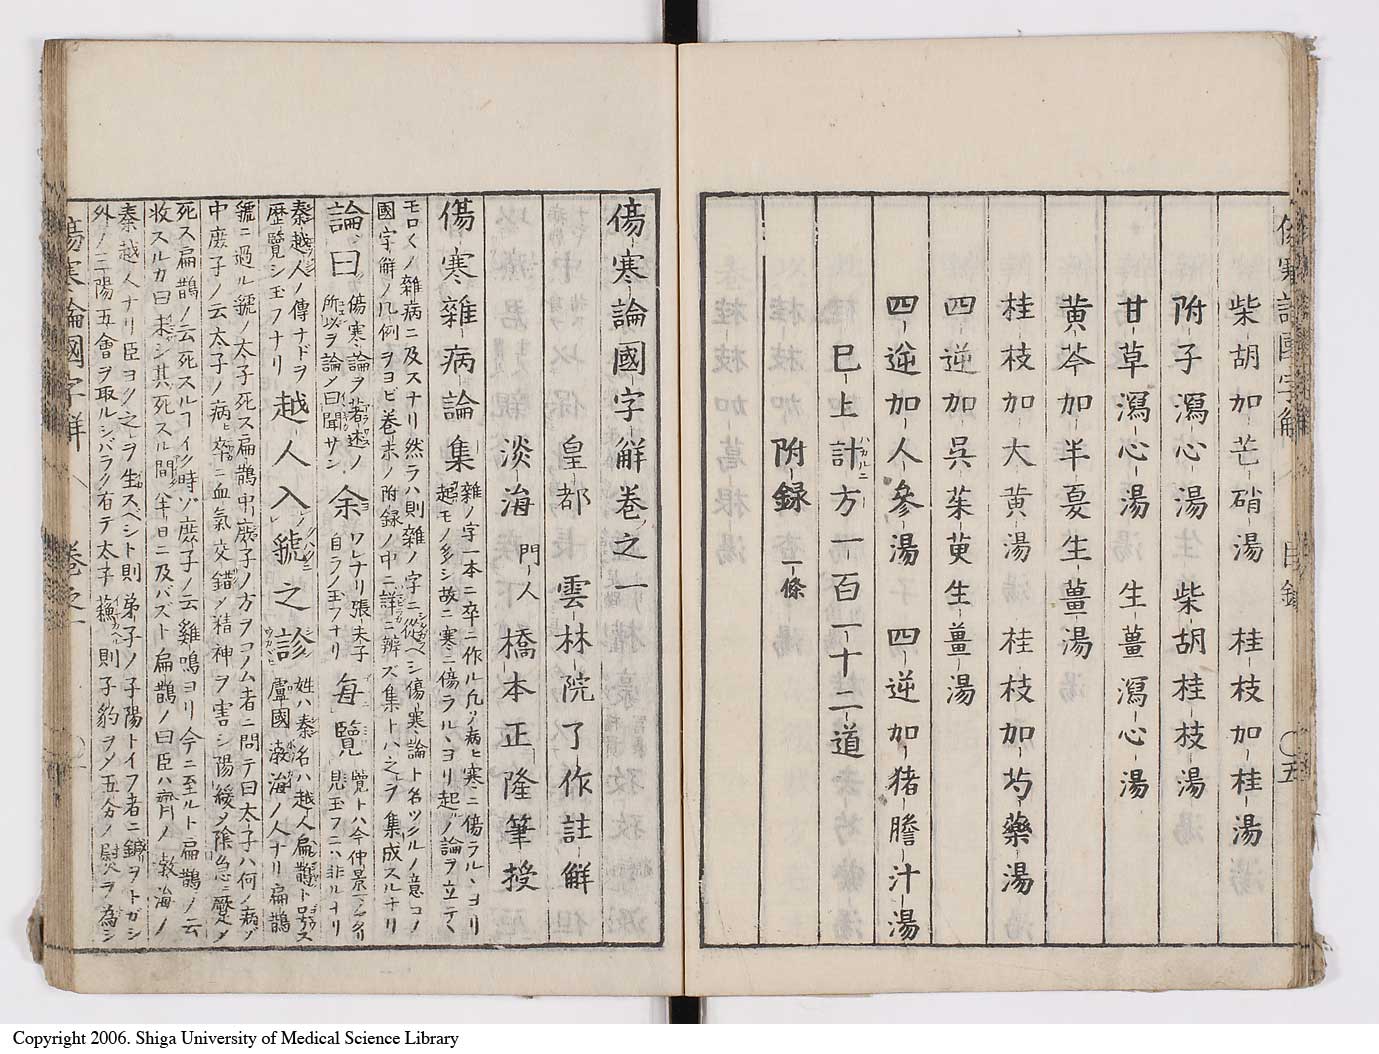 柴胡加芒硝湯　桂枝加桂湯
附子瀉心湯　柴胡桂枝湯
甘草瀉心湯　生薑瀉心湯
黄芩加半夏生薑湯
桂枝加大黄湯　桂枝加芍藥湯
四逆加呉茱萸生薑湯
四逆加人參湯　四逆加猪膽汁湯
已上計方一百一十二道
附録 一條
傷寒論國字解巻之一
皇都　雲林院了作註解
淡海　門人　橋本正隆筆授
傷寒雜病論集 雜ノ字一本ニ卒ニ作ル凡ソ病ヒ寒ニ傷ラルヽヨリ
起ルモノ多シ故ニ寒ニ傷ラルヽヨリ起ルノ論ヲ立テヽ
モロ〱ノ雜病ニ及スナリ然ラハ則雜ノ字ニ從ベシ傷寒論ト名ツクルノ意コノ
國字解ノ凡例ヲヨビ巻末ノ附録ノ中ニ詳ニ辨ズ集トハ之ヲ集成スルナリ
論曰 傷寒論ヲ著述ノ
所以ヲ論メ曰聞サン
余 ワレナリ張夫子
自ラノ玉フナリ
毎覽 覽トハ今仲景
見玉フニハ非ルナリ
秦越人ノ傳ナドヲ
歴覽シ玉フナリ
越人入虢之診 姓ハ秦名ハ越人扁鵲ト号ス
盧國渤海ノ人ナリ扁鵲
虢ニ過ル虢ノ太子死ス扁鵲中庶子ノ方ヲコノム者ニ問テ曰太子ハ何ノ病ゾ
中庶子ノ云太子ノ病ヒ卒ニ血氣交錯メ精神ヲ害シ陽緩メ陰急ニ蹷メ
死ス扁鵲ノ云死スルコイクノ時ゾ庶子ノ云雞鳴ヨリ今ニ至ルト扁鵲ノ云
收スルカ曰未シ其死スル間半日ニ及バズト扁鵲ノ曰臣ハ齊ノ勃海ノ
秦越人ナリ臣ヨク之ヲ生スベシト則弟子ノ子陽トイフ者ニ鍼ヲトガシ
外ノ三陽五會ヲ取ルシバラク有テ太子蘓則子豹ヲメ五分ノ熨ヲ為シ
傷寒論國字解　巻之一
傷寒論國字解　目録　五
Copyright 2006. Shiga University of Medical Science Library